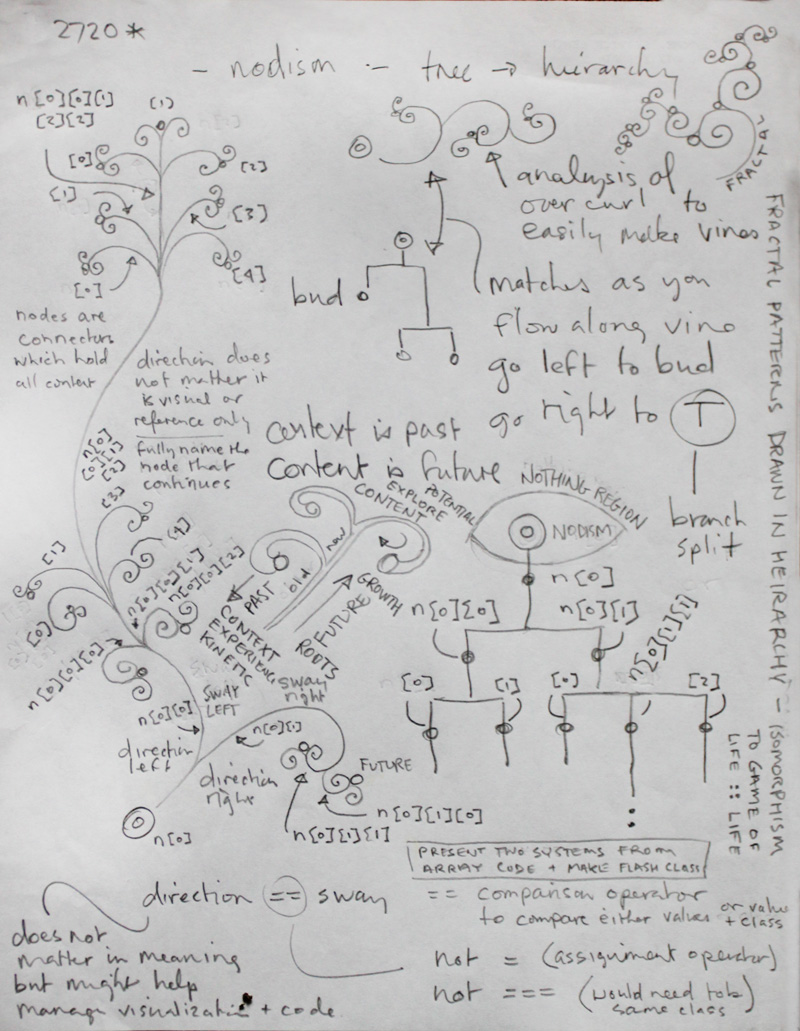 2720*
- nodism - tree → heirarchy
n[0][0][1]
[2][2]
[1]
[0]
[2]
[1]
[3]
[0]
[4]
FRACTAL
analysis of
over curl to
easily make vines
bud
matches as you
flow along vine
go left to bud
go right to T
branch
split
nodes are
connectors
which hold
all context
direction does
not matter it
is visual or
reference only
fully name the
node that
continues
context is past
content is future
n[0]
[0][1]
[2]
[3]
[4]
[1]
[0]
n[0][0][1]
n[0][0][2]
n[0][0][0]
n[0][0]
SWAY
LEFT
direction
left
SWAY
right
n[0][1]
direction
right
FUTURE
n[0][1][0]
n[0][1][1]
n[0]
PAST
old
now
CONTEXT
EXPERIENCE
KINETIC
CONTENT
EXPLORE
POTENTIAL
GROWTH
FUTURE
ROOTS
NOTHING REGION
NODISM
n[0]
n[0][0]
n[0][1]
[0]
[1]
[0]
n[0][1][1]
[2]
FRACTAL PATTERNS DRAWN IN HEIRARCHY - ISOMORPHISM
TO GAME OF
LIFE :: LIFE
PRESENT TWO SYSTEMS FROM
ARRAY CODE + MAKE FLASH CLASS
direction == sway
does not
matter in meaning
but might help
manage visualization + code
== comparison operator
to compare either values or value
+ class
not = (assignment operator)
not === (would need to be
same class)